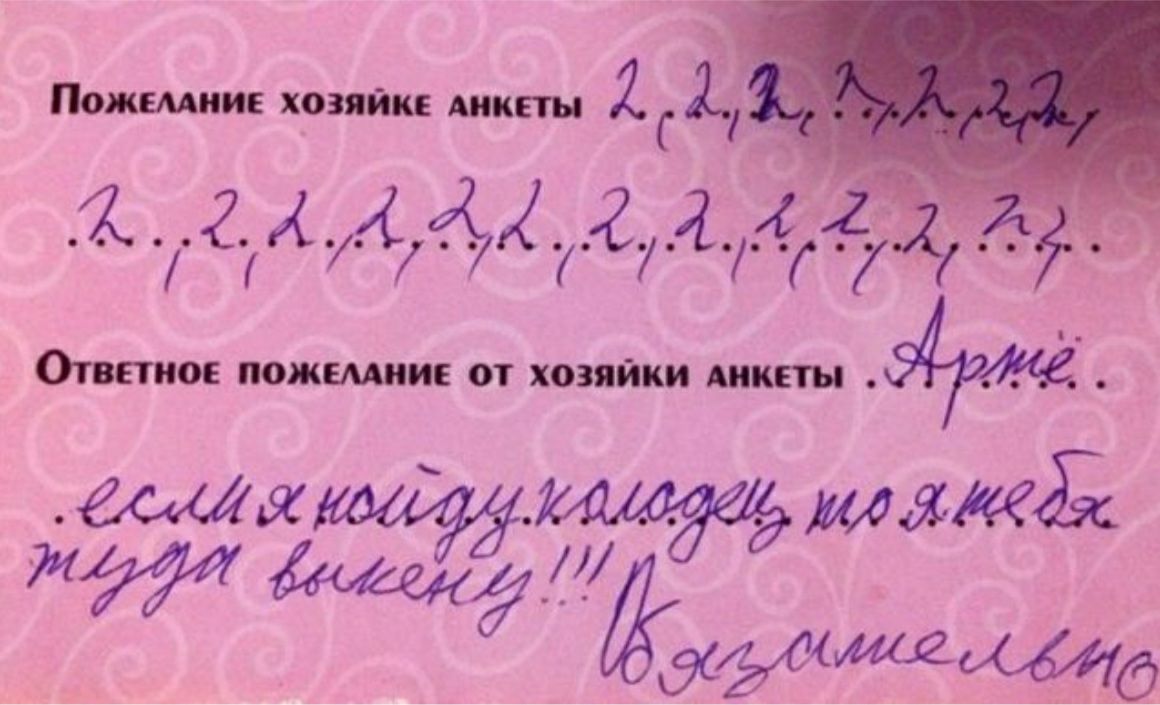 Пожелание хозяйке анкеты 2, 2, 2, 2, 2, 2, 2,
2, 2, 2, 2, 2, 2, 2, 2, 2, 2, 2, 2,
Ответное пожелание от хозяйки анкеты Артё
если я нойду колодец то я тебя
туда выкену!!!
Обязательно